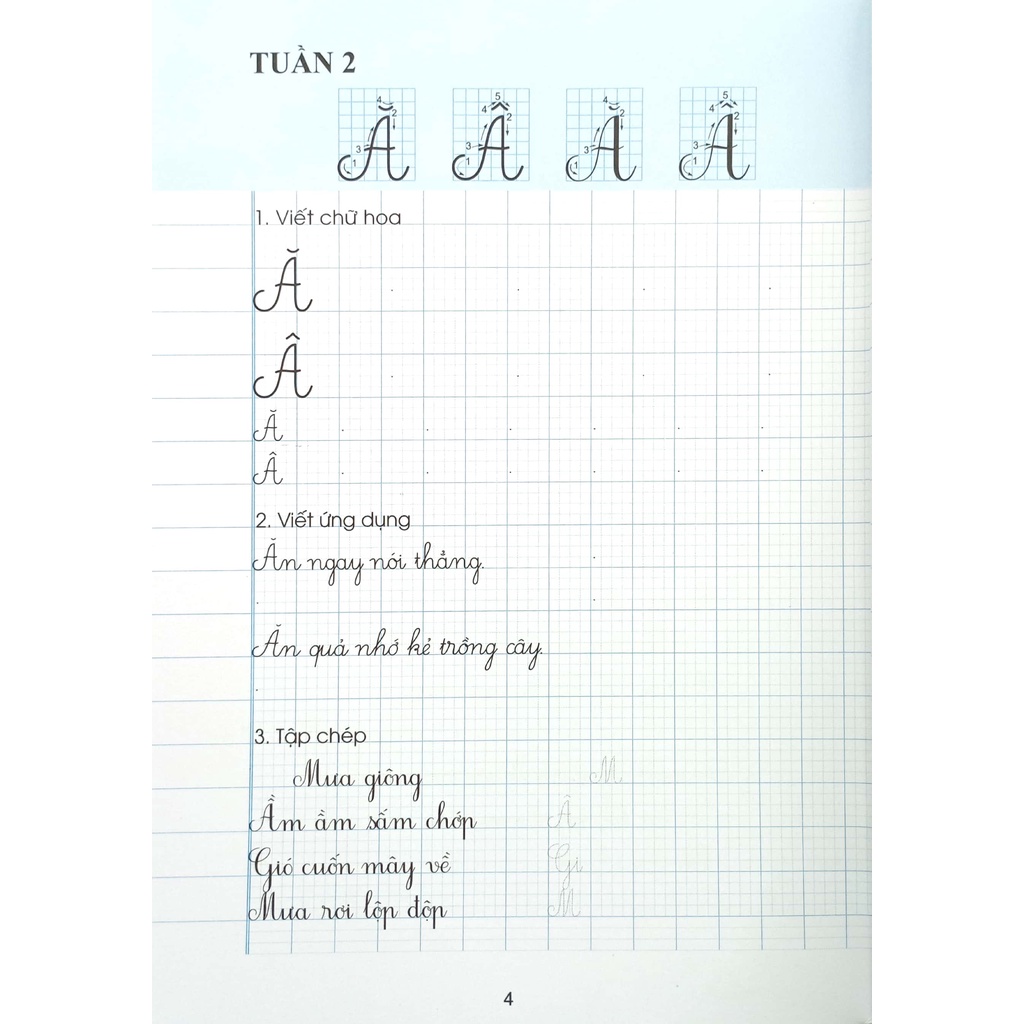 TUẦN 2
4 2 3 1 Ă 5 4 2 3 1 Â 4 2 3 1 Ă 5 4 2 3 1 Â
1. Viết chữ hoa
Ă
Â
Ă
Â
2. Viết ứng dụng
Ăn ngay nói thẳng.
Ăn quả nhớ kẻ trồng cây.
3. Tập chép
Mưa giông M
Ầm ầm sấm chớp Â
Gió cuốn mây về Gi
Mưa rơi lộp độp M
4